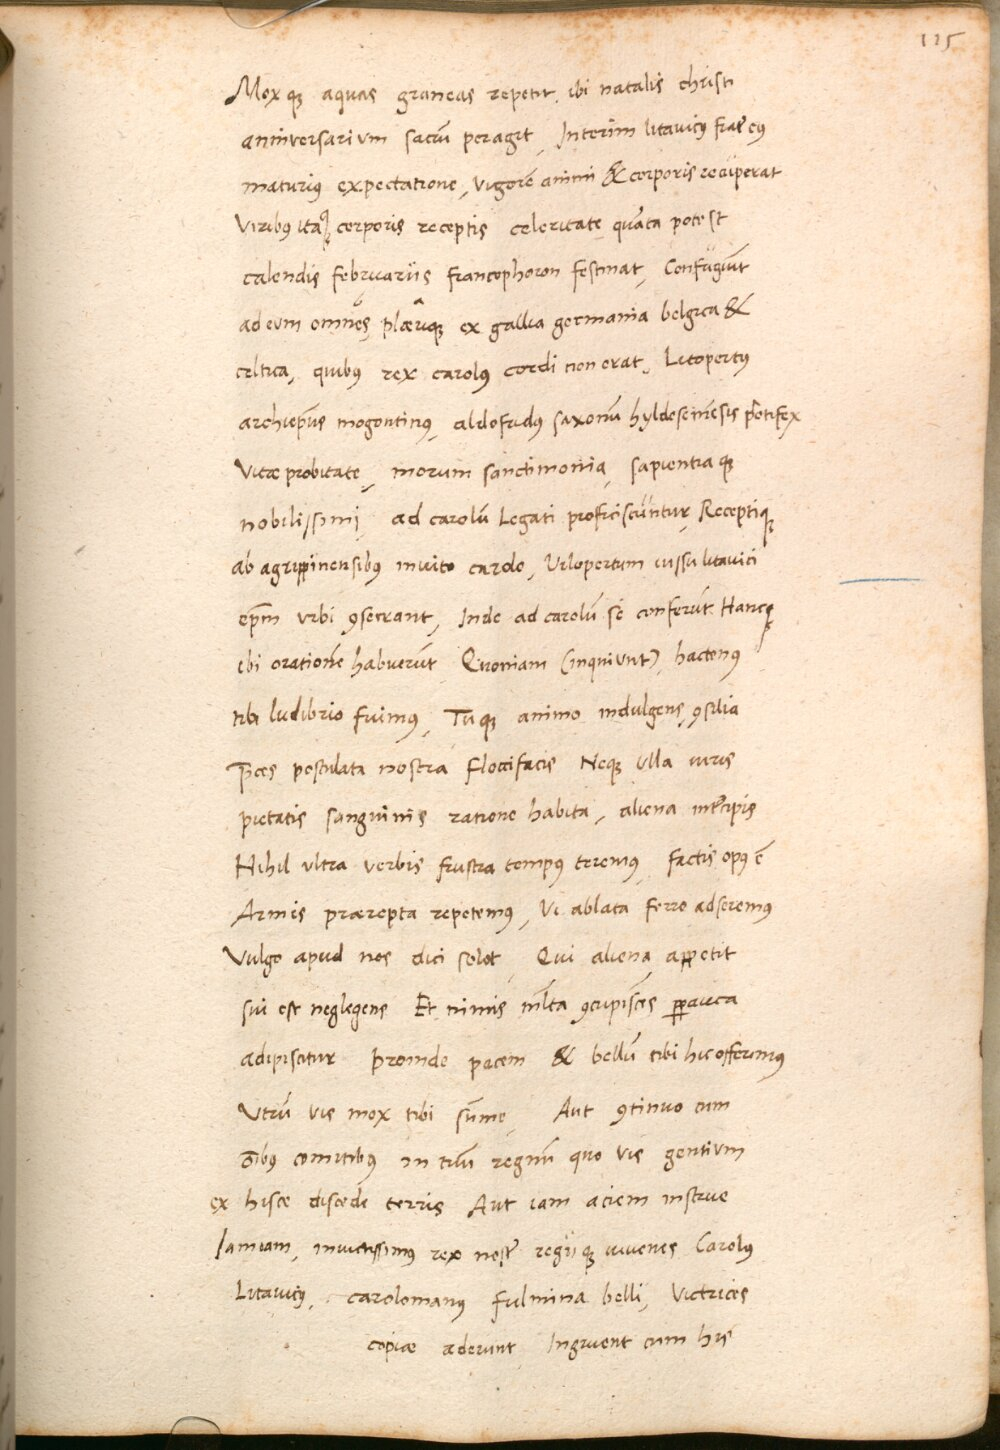 125
Mox qꝫ aquas graneas repetit, ibi natalis christi
anniversarivm sacrū peragit, Interim litavicꝰ frat̄ eiꝰ
maturiꝰ expectatione, vigorē animi & corporis recuperat
Viribꝰ itaqꝫ corporis receptis celeritate quāta potest
calendis februariis francophoron festinat, Confugiūt
ad eum omnēs, plæriqꝫ ex gallia germania belgica &
celtica, quibꝰ rex carolꝰ cordi non erat, Litopertꝰ
archiep̄us mogontinꝰ, aldofridꝰ saxonū hyldesemēsis pōtifex
Vitæ probitate, morum sanctimonia, sapientia qꝫ
nobilissimi, ad carolū Legati proficiscūntur, Receptiqꝫ
ab agrippinensibꝰ invito carolo, Vilopertum iussu litavici
ep̄m vrbi ꝯsecrant, Inde ad carolū se conferūt Hancqꝫ
ibi orationē habuerūt Quoniam (inquiunt) hactenꝰ
tibi ludibrio fuimꝰ, Tuqꝫ animo indulgens, ꝯsilia
p̄ces postulata nostra floccifacis Neqꝫ vlla iuris
pietatis sanguinis ratione habita, aliena int̄cipis
Nihil vltra verbis frustra tempꝰ teremꝰ, factis opꝰ ē
Armis prærepta repetemꝰ, Vi ablata ferro adseremꝰ
Vulgo apud nos dici solet, Qui aliena appetit
sui est neglegens Et nimis ml̄ta ꝯcupisc̄es ꝑpauca
adipiscitur Proinde pacem & bellū tibi hic offerimꝰ
Vtrū vis mox tibi sūme, Aut ꝯtinuo cum
ōibꝰ comitibꝰ in tuū regnū quo vis gentivm
ex hisce discede terris Aut iam aciem instrue
Iamiam, invictissimꝰ rex nost̄ regiiqꝫ iuvenes Carolꝰ
Litavicꝰ, carolomanꝰ fulmina belli, Victrices
copiæ aderunt Ingruent cum his